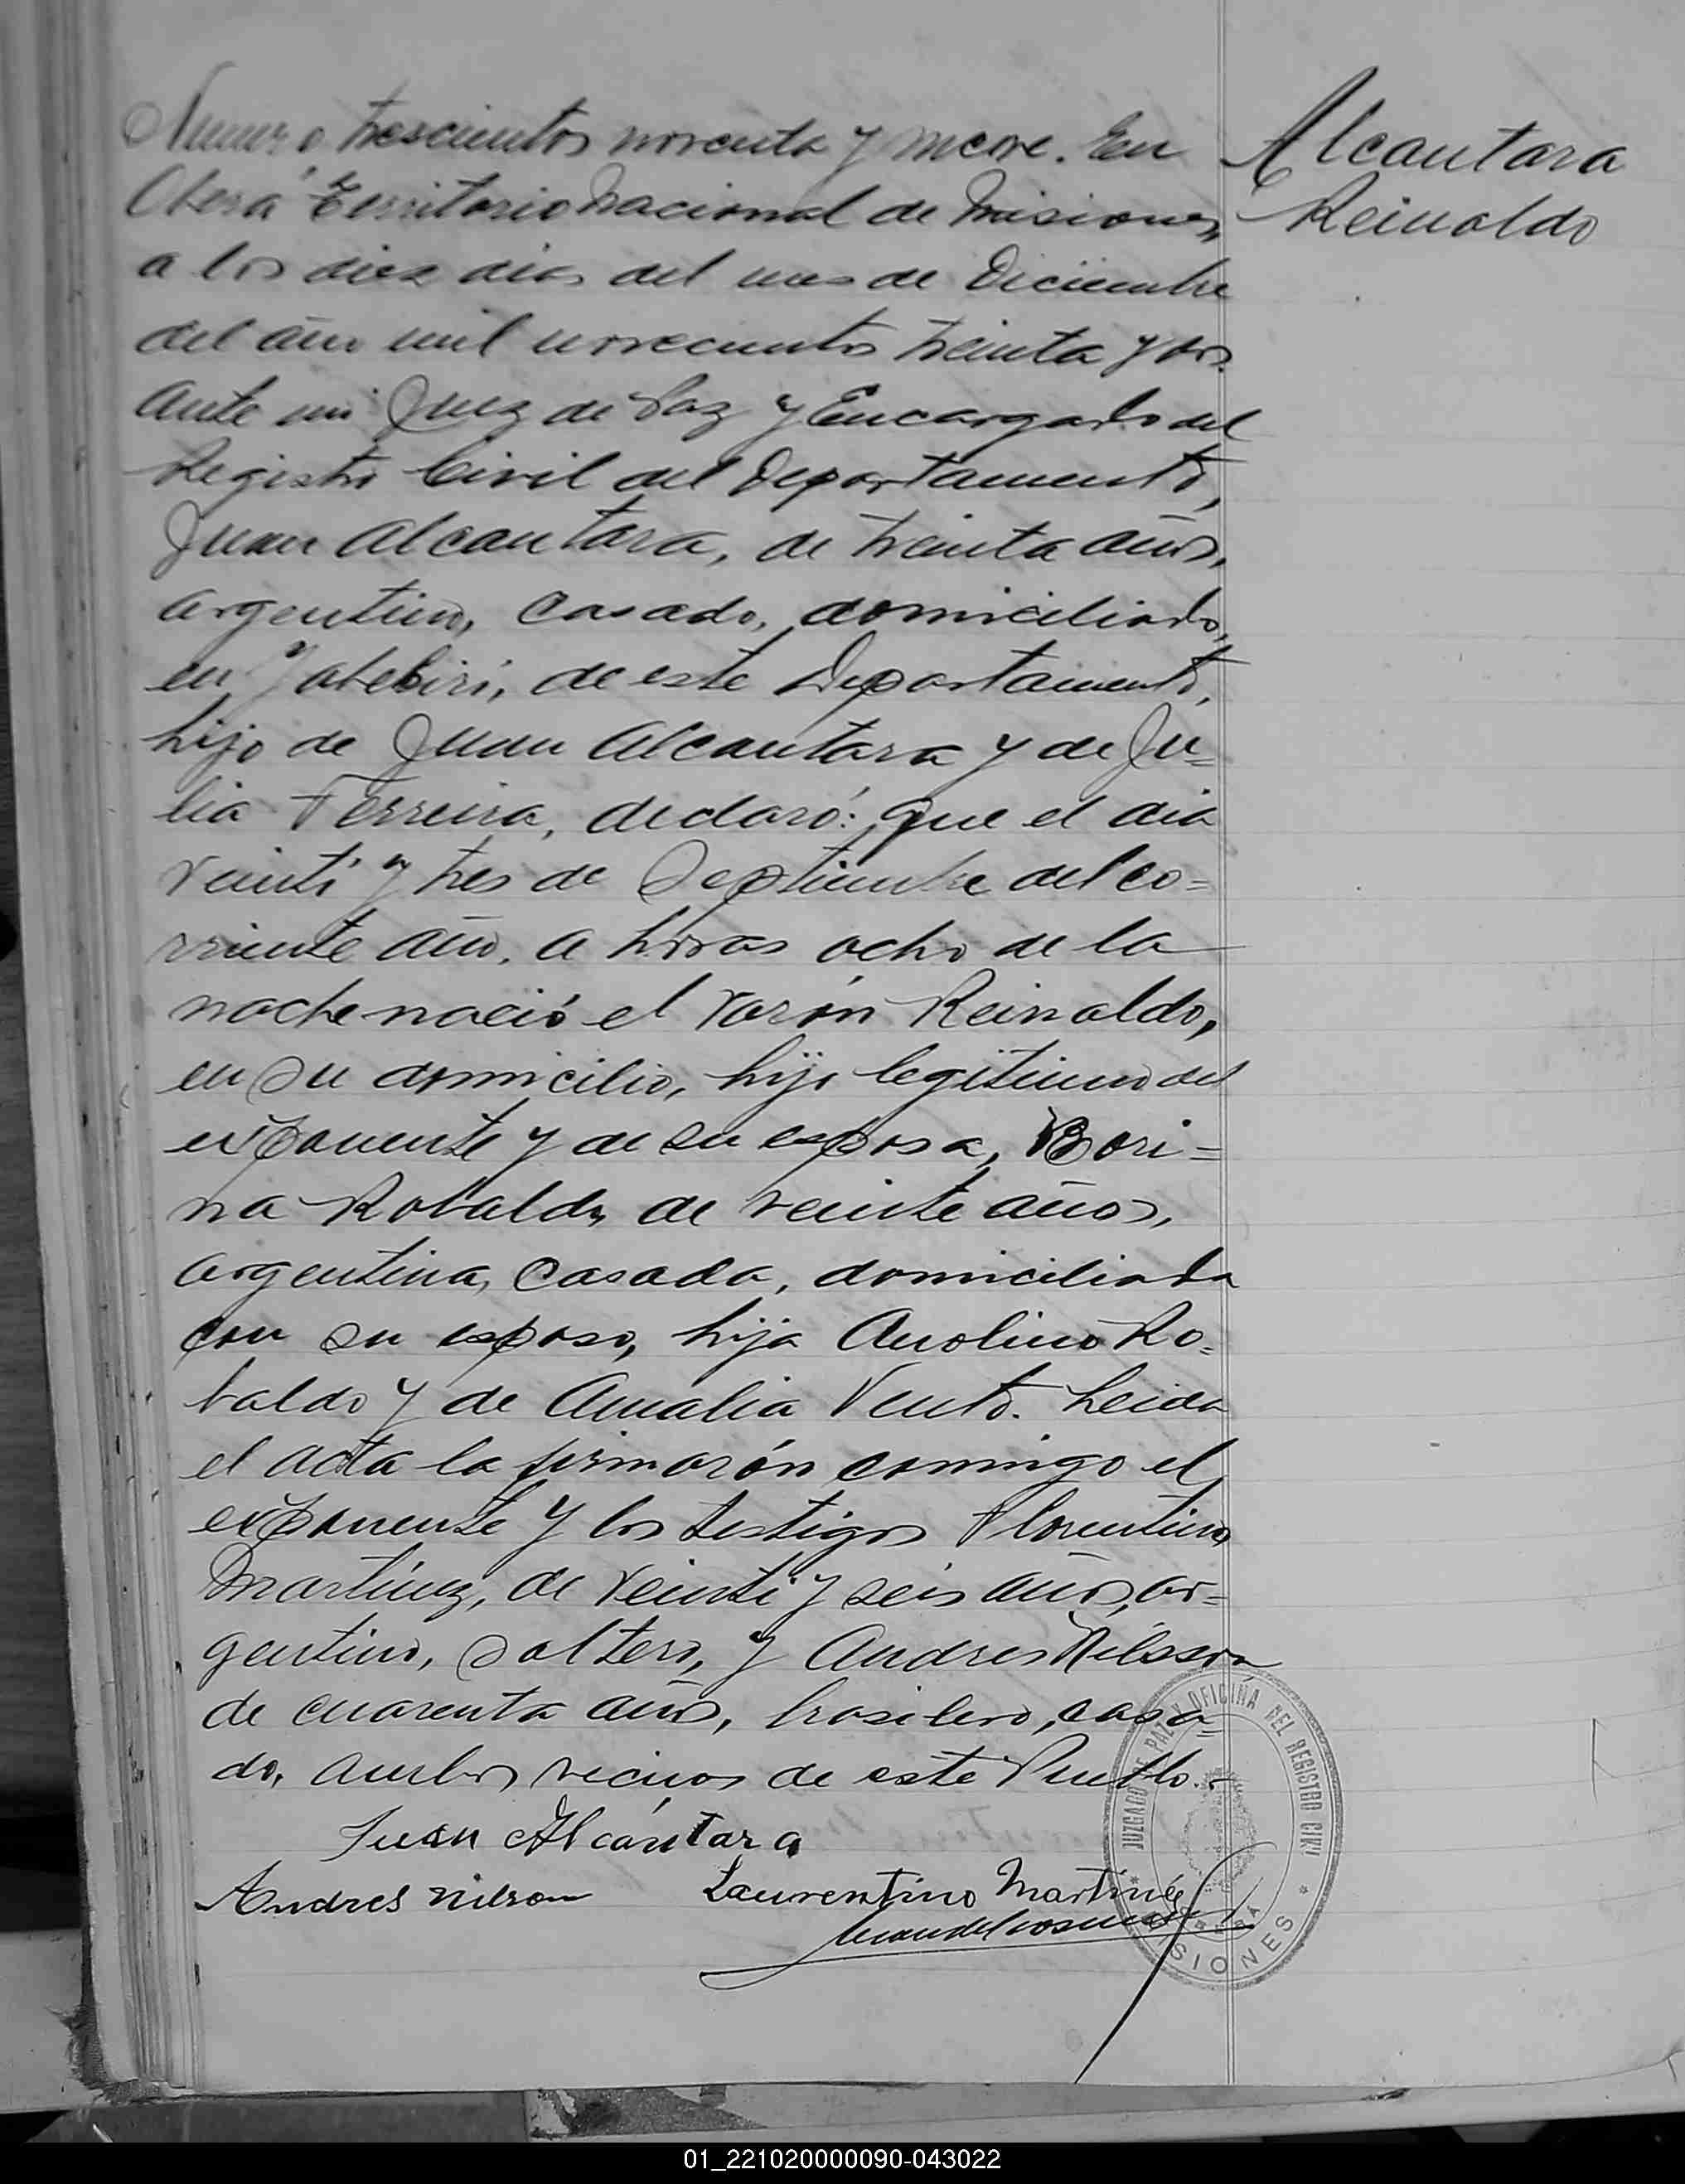 Numero trescientos noventa y nueve. En
Alcantara
Reinaldo
Oberá Territorio Nacional de Misiones,
a los diez dias del mes de Diciembre
del año mil novecientos treinta y dos.
Ante mi Juez de Paz y Encargado del
Registro Civil del Departamento,
Juan Alcantara, de treinta años,
argentino, casado, domiciliado,
en Yabebirí, de este Departamento,
hijo de Juan Alcantara y de Ju=
lia Ferreira, declaró: que el dia
veinti y tres de Septiembre del co=
rriente año, a horas ocho de la
noche nació el varón Reinaldo,
en su domicilio, hijo legitimo del
exponente y de su esposa, Bori=
na Robaldo, de veinte años,
argentina, casada, domiciliada
con su esposo, hija Anolino Ro=
baldo y de Amalia Vento. Leida
el acta la firmarón conmigo el
exponente y los testigos Florentino
Martínez, de veinti y seis años, ar=
gentino, soltero, y Andres Nilsson
de cuarenta años, brasilero, casa=
do, ambos vecinos de este Pueblo.-
Juan Alcantara
Andres Nilson Laurentino Martínez
JUZGADO DE PAZ Y OFICINA DEL REGISTRO CIVIL
MISIONES
01_221020000090-043022